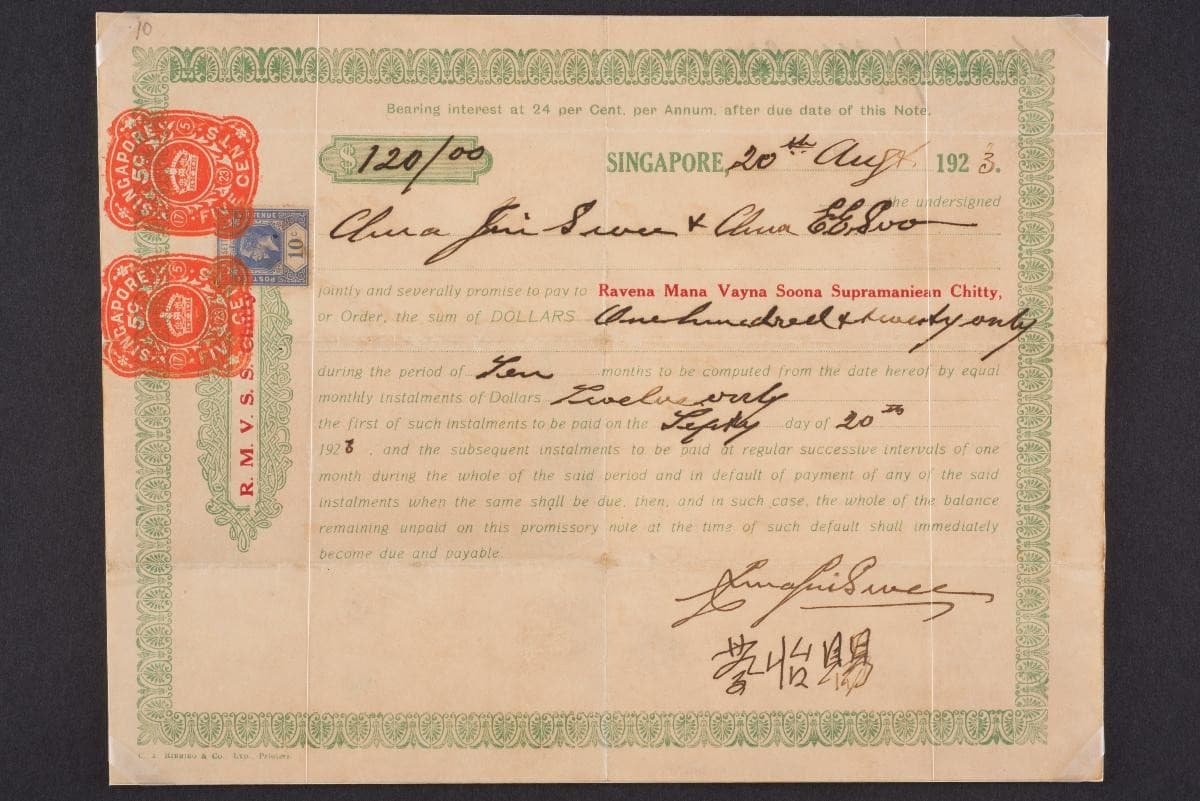 10
Bearing interest at 24 per Cent. per Annum, after due date of this Note.
$ 120/00 SINGAPORE, 20th Augt 1923.
the undersigned
Chua Jin Swee & Chua EE Soo
jointly and severally promise to pay to Ravena Mana Vayna Soona Supramaniean Chitty,
or Order, the sum of DOLLARS One hundred & twenty only
during the period of Ten months to be computed from the date hereof by equal
monthly instalments of Dollars Twelve only
the first of such instalments to be paid on the Septr day of 20th
1923, and the subsequent instalments to be paid at regular successive intervals of one
month during the whole of the said period and in default of payment of any of the said
instalments when the same shall be due, then, and in such case, the whole of the balance
remaining unpaid on this promissory note at the time of such default shall immediately
become due and payable.
Chua Jin Swee
怡賜
SINGAPORE 5C FIVE CENTS
17 5 23
SINGAPORE 5C FIVE CENTS
17 5 23
REVENUE 10c POST
R. M. V. S. S. Chitty
RIBEIRO & Co. LTD. Printers.